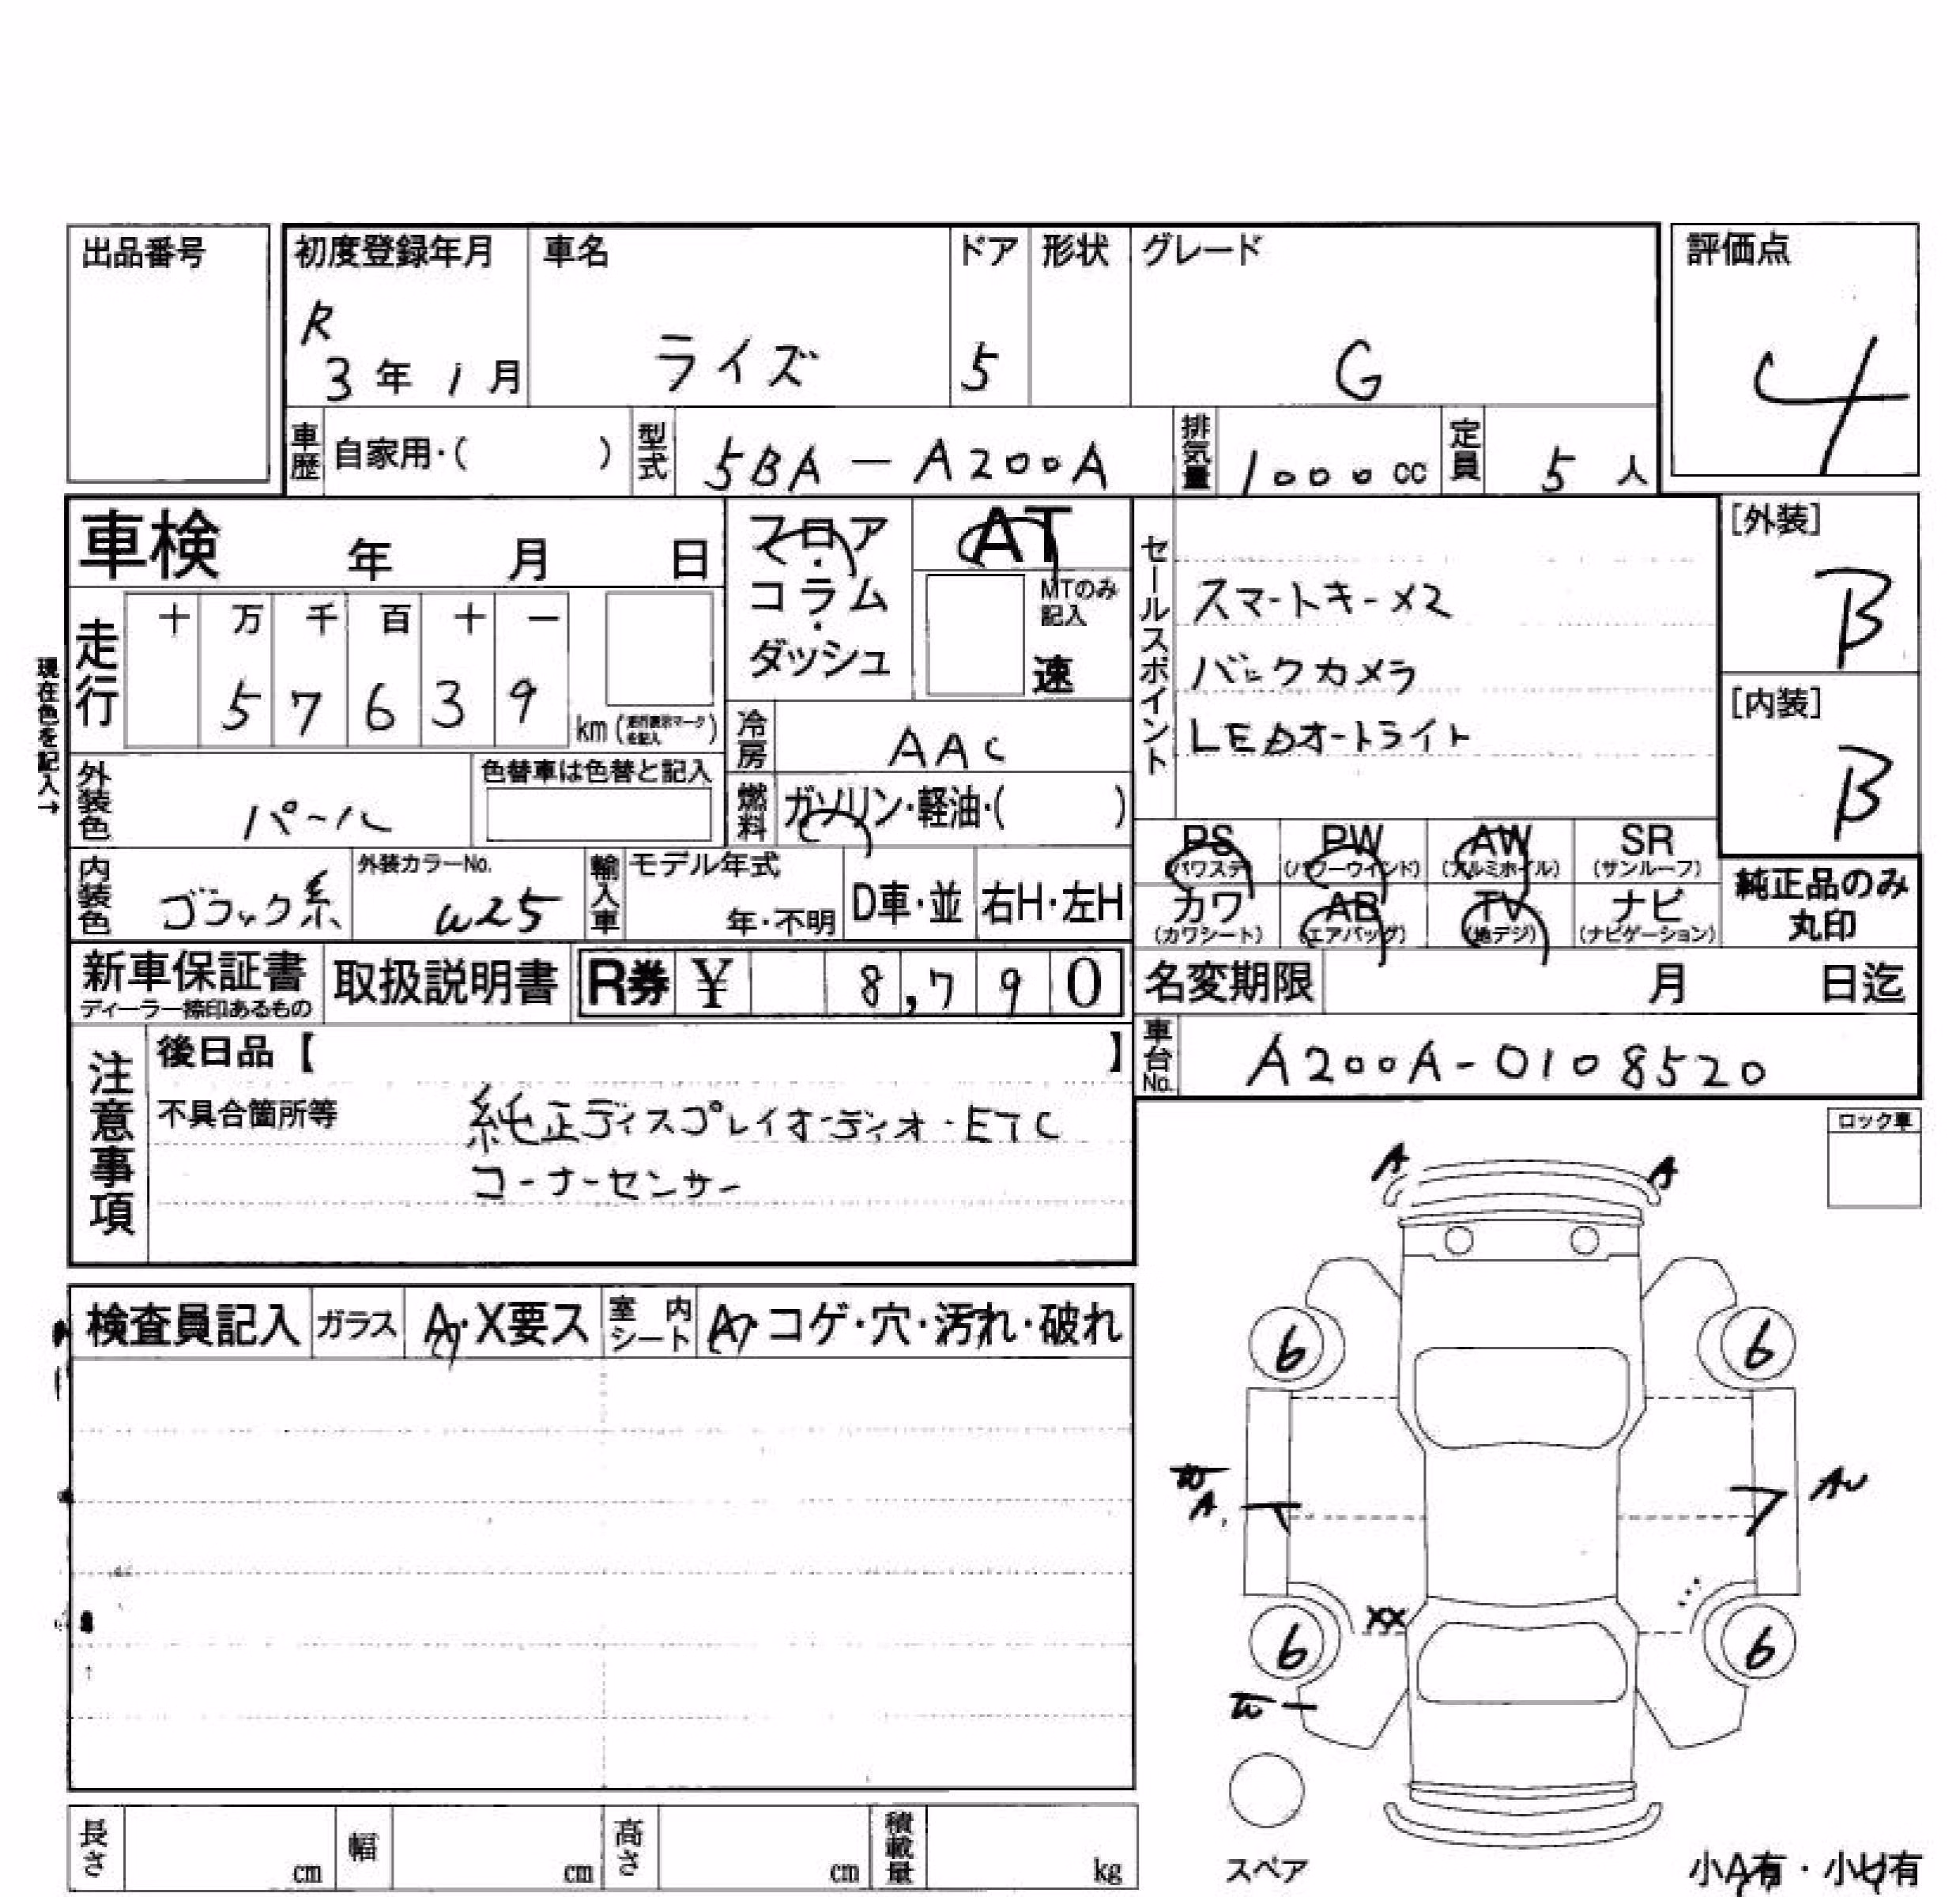 出品番号
初度登録年月 車名 ドア 形状 グレード 評価点
R
3年 1月 ライズ 5 G 4
車歴 自家用・( ) 型式 5BA-A200A 排気量 1000cc 定員 5人
車検 年 月 日
フロア・コラム・ダッシュ
AT
MTのみ記入
速
セールスポイント
スマートキー×2
バックカメラ
LEDオートライト
[外装]
B
[内装]
B
現在色を記入→
走行 十 万 千 百 十 一
5 7 6 3 9 km
冷房 AAC
外装色 パール 色替車は色替と記入
燃料 ガソリン・軽油・( )
PS (パワステ) PW (パワーウインド) AW (アルミホイル) SR (サンルーフ)
カワ (カワシート) AB (エアバッグ) TV (地デジ) ナビ (ナビゲーション)
純正品のみ
丸印
内装色 ブラック系 外装カラーNo. W25 輸入車 モデル年式 年・不明 D車・並 右H・左H
新車保証書 取扱説明書 R券 ¥ 8,790
ディーラー捺印あるもの
名変期限 月 日迄
車台No. A200A-0108520
注意事項
後日品【 】
不具合箇所等 純正ディスプレイオーディオ・ETC
コーナーセンサー
ロック車
A A
検査員記入 ガラス A・X要ス 室内シート A・コゲ・穴・汚れ・破れ
6 6
A
XX
6 6
長さ cm 幅 cm 高さ cm 積載量 kg
スペア
小A有・小U有